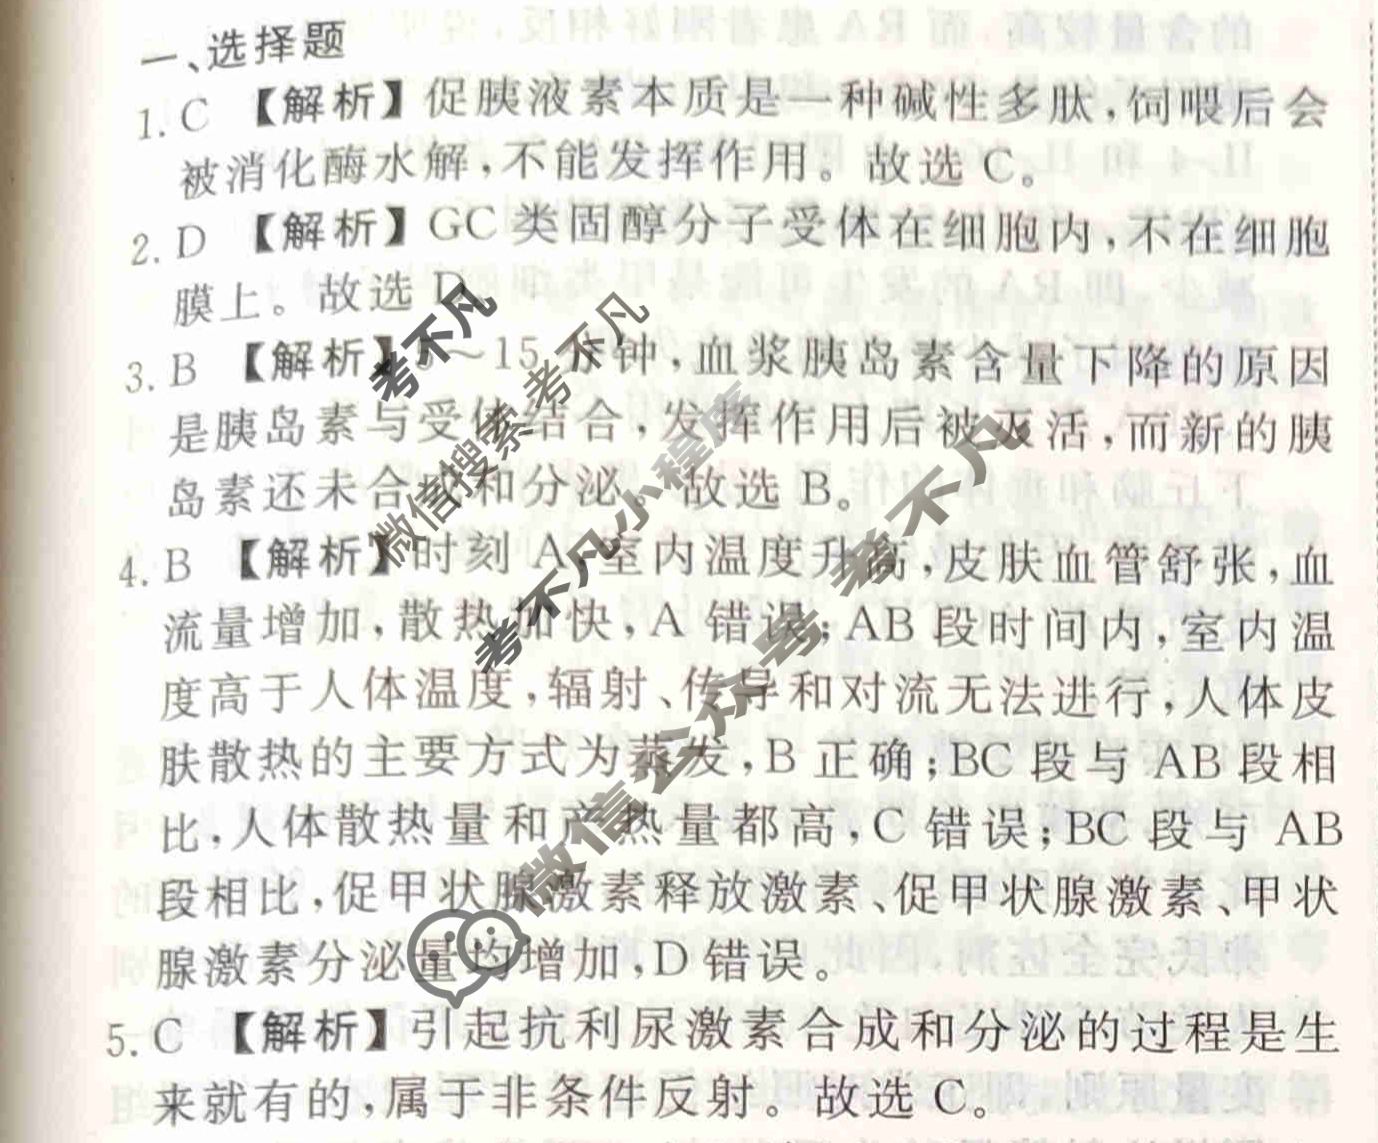 一、选择题
1. C 【解析】促胰液素本质是一种碱性多肽，饲喂后会
被消化酶水解，不能发挥作用。故选 C。
2. D 【解析】GC 类固醇分子受体在细胞内，不在细胞
膜上。故选 D
3. B 【解析】～15 分钟，血浆胰岛素含量下降的原因
是胰岛素与受体结合，发挥作用后被灭活，而新的胰
岛素还未合成和分泌。故选 B。
4. B 【解析】时刻 A，室内温度升高，皮肤血管舒张，血
流量增加，散热加快，A 错误；AB 段时间内，室内温
度高于人体温度，辐射、传导和对流无法进行，人体皮
肤散热的主要方式为蒸发，B 正确；BC 段与 AB 段相
比，人体散热量和产热量都高，C 错误；BC 段与 AB
段相比，促甲状腺激素释放激素、促甲状腺激素、甲状
腺激素分泌量均增加，D 错误。
5. C 【解析】引起抗利尿激素合成和分泌的过程是生
来就有的，属于非条件反射。故选 C。
考不凡
微信搜索 考不凡
考不凡小程序
微信公众号 考不凡